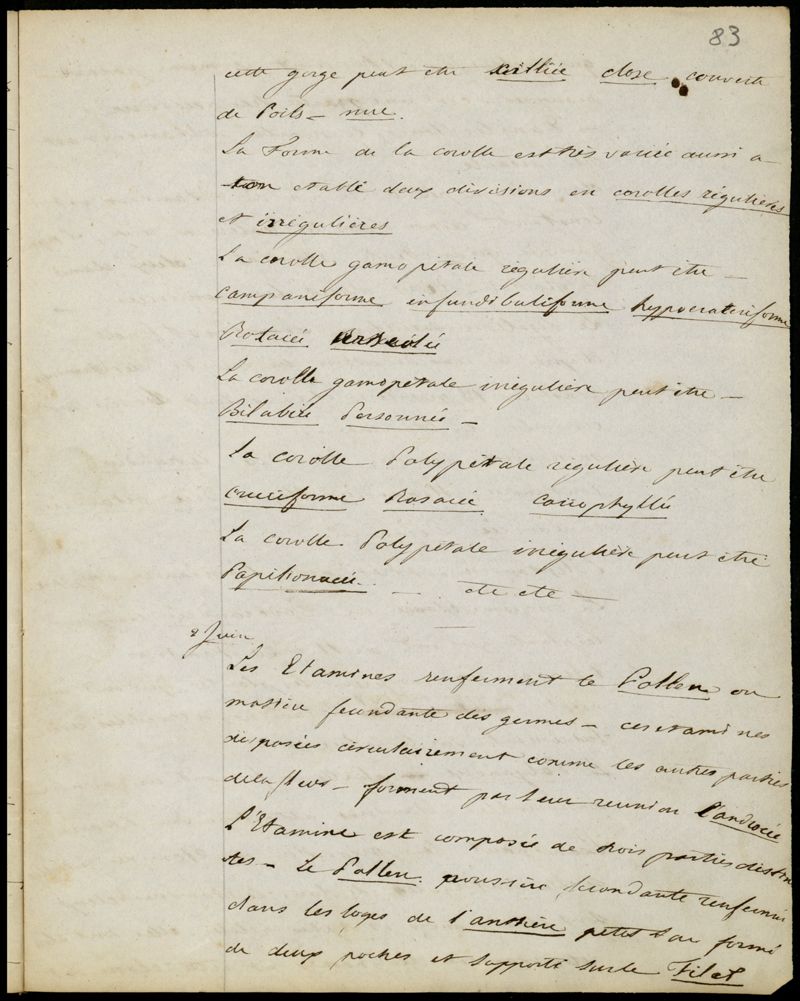 83
cette gorge peut être close couverte
de Poils - nue.
La Forme de la corolle est très variée aussi a-
t-on etabli deux divisions en corolles régulières
et irrégulières
La corolle gamopétale régulière peut être -
campaniforme infundibuliforme hypocrateriforme
Rotacée
La corolle gamopétale irrégulière peut être -
Bilabiée Personnée -
La corolle Polypétale régulière peut être
cruciforme Rosacée cariophyllée
La corolle Polypétale irrégulière peut être
Papilionacée. - etc etc -
2 Juin
Les Etamines renferment le Pollen ou
matière fecondante des germes - ces etamines
disposées circulairement comme les autres parties
de la fleur - forment par leur reunion l'androcée
L'Etamine est composée de trois parties distin
tes - Le Pollen poussière fecondante renfermée
dans les loges de l'anthère petit sac formé
de deux poches et supporté sur le Filet